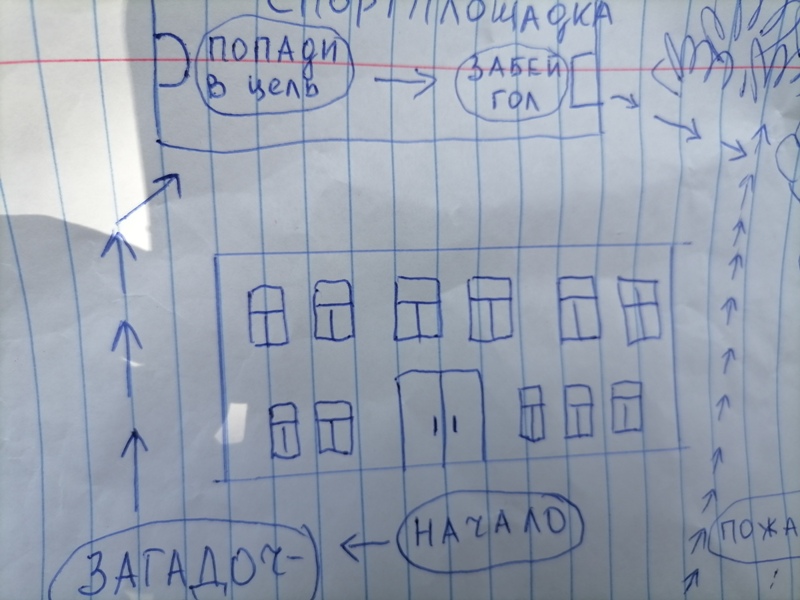 СПОРТПЛОЩАДКА
ПОПАДИ
В ЦЕЛЬ
ЗАБЕЙ
ГОЛ
НАЧАЛО
ЗАГАДОЧ-
ПОЖА